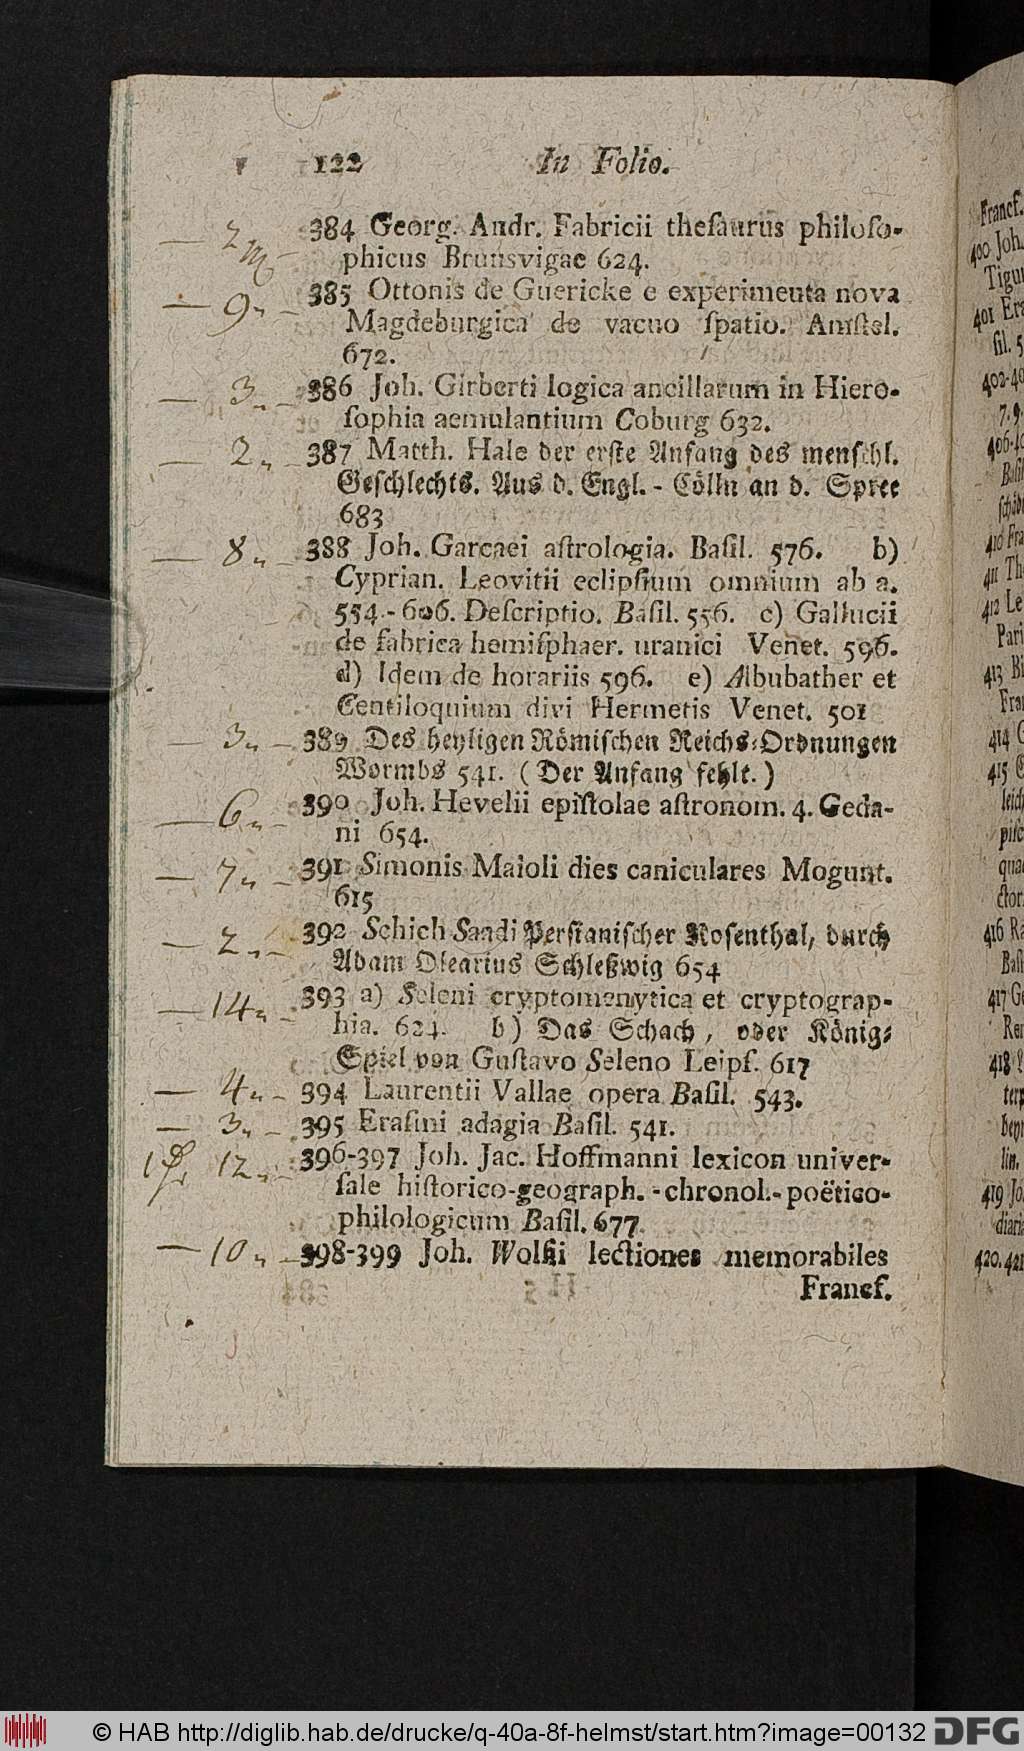 122 In Folio.
— 2 mg — 384 Georg. Andr. Fabricii theſaurus philoſo-
phicus Brunsvigae 624.
— 9 „ — 385 Ottonis de Guericke e experimenta nova
Magdeburgica de vacuo ſpatio. Amſtel.
672.
— 3 „ — 386 Joh. Girberti logica ancillarum in Hiero-
ſophia aemulantium Coburg 632.
— 2 „ — 387 Matth. Hale der erſte Anfang des menſchl.
Geſchlechts. Aus d. Engl. - Cölln an d. Spree
683
— 8 „ — 388 Joh. Garcaei aſtrologia. Baſil. 576. b)
Cyprian. Leovitii eclipſium omnium ab a.
554-606. Deſcriptio. Baſil. 556. c) Gallucii
de fabrica hemiſphaer. uranici Venet. 596.
d) Idem de horariis 596. e) Albubather et
Centiloquium divi Hermetis Venet. 501
— 3 „ — 389 Des heyligen Römiſchen Reichs-Ordnungen
Wormbs 541. (Der Anfang fehlt.)
— 6 „ — 390 Joh. Hevelii epiſtolae aſtronom. 4. Geda-
ni 654.
— 7 „ — 391 Simonis Maioli dies caniculares Mogunt.
615
— 2 „ — 392 Schich Saadi Perſianiſcher Roſenthal, durch
Adam Olearius Schleßwig 654
— 14 „ — 393 a) Seleni cryptomenytica et cryptograp-
hia. 624. b) Das Schach, oder König-
Spiel von Guſtavo Seleno Leipſ. 617
— 4 „ — 394 Laurentii Vallae opera Baſil. 543.
— 3 „ — 395 Eraſmi adagia Baſil. 541.
1 12 „ — 396-397 Joh. Jac. Hoffmanni lexicon univer-
ſale hiſtorico-geograph. -chronol.-poëtico-
philologicum Baſil. 677
— 10 „ — 398-399 Joh. Wolfii lectiones memorabiles
Francf.
Francf.
400 Joh.
Tigur
401 Era
ſil. 5
402-40
7. 9.
406-40
Baſil
410 Fra
411 Th
412 Le
Pari
413 Bi
Fran
414 G
415
416 Ra
Baſ
417 Ge
418
419 Jo
diari
420. 421
© HAB http://diglib.hab.de/drucke/q-40a-8f-helmst/start.htm?image=00132 DFG